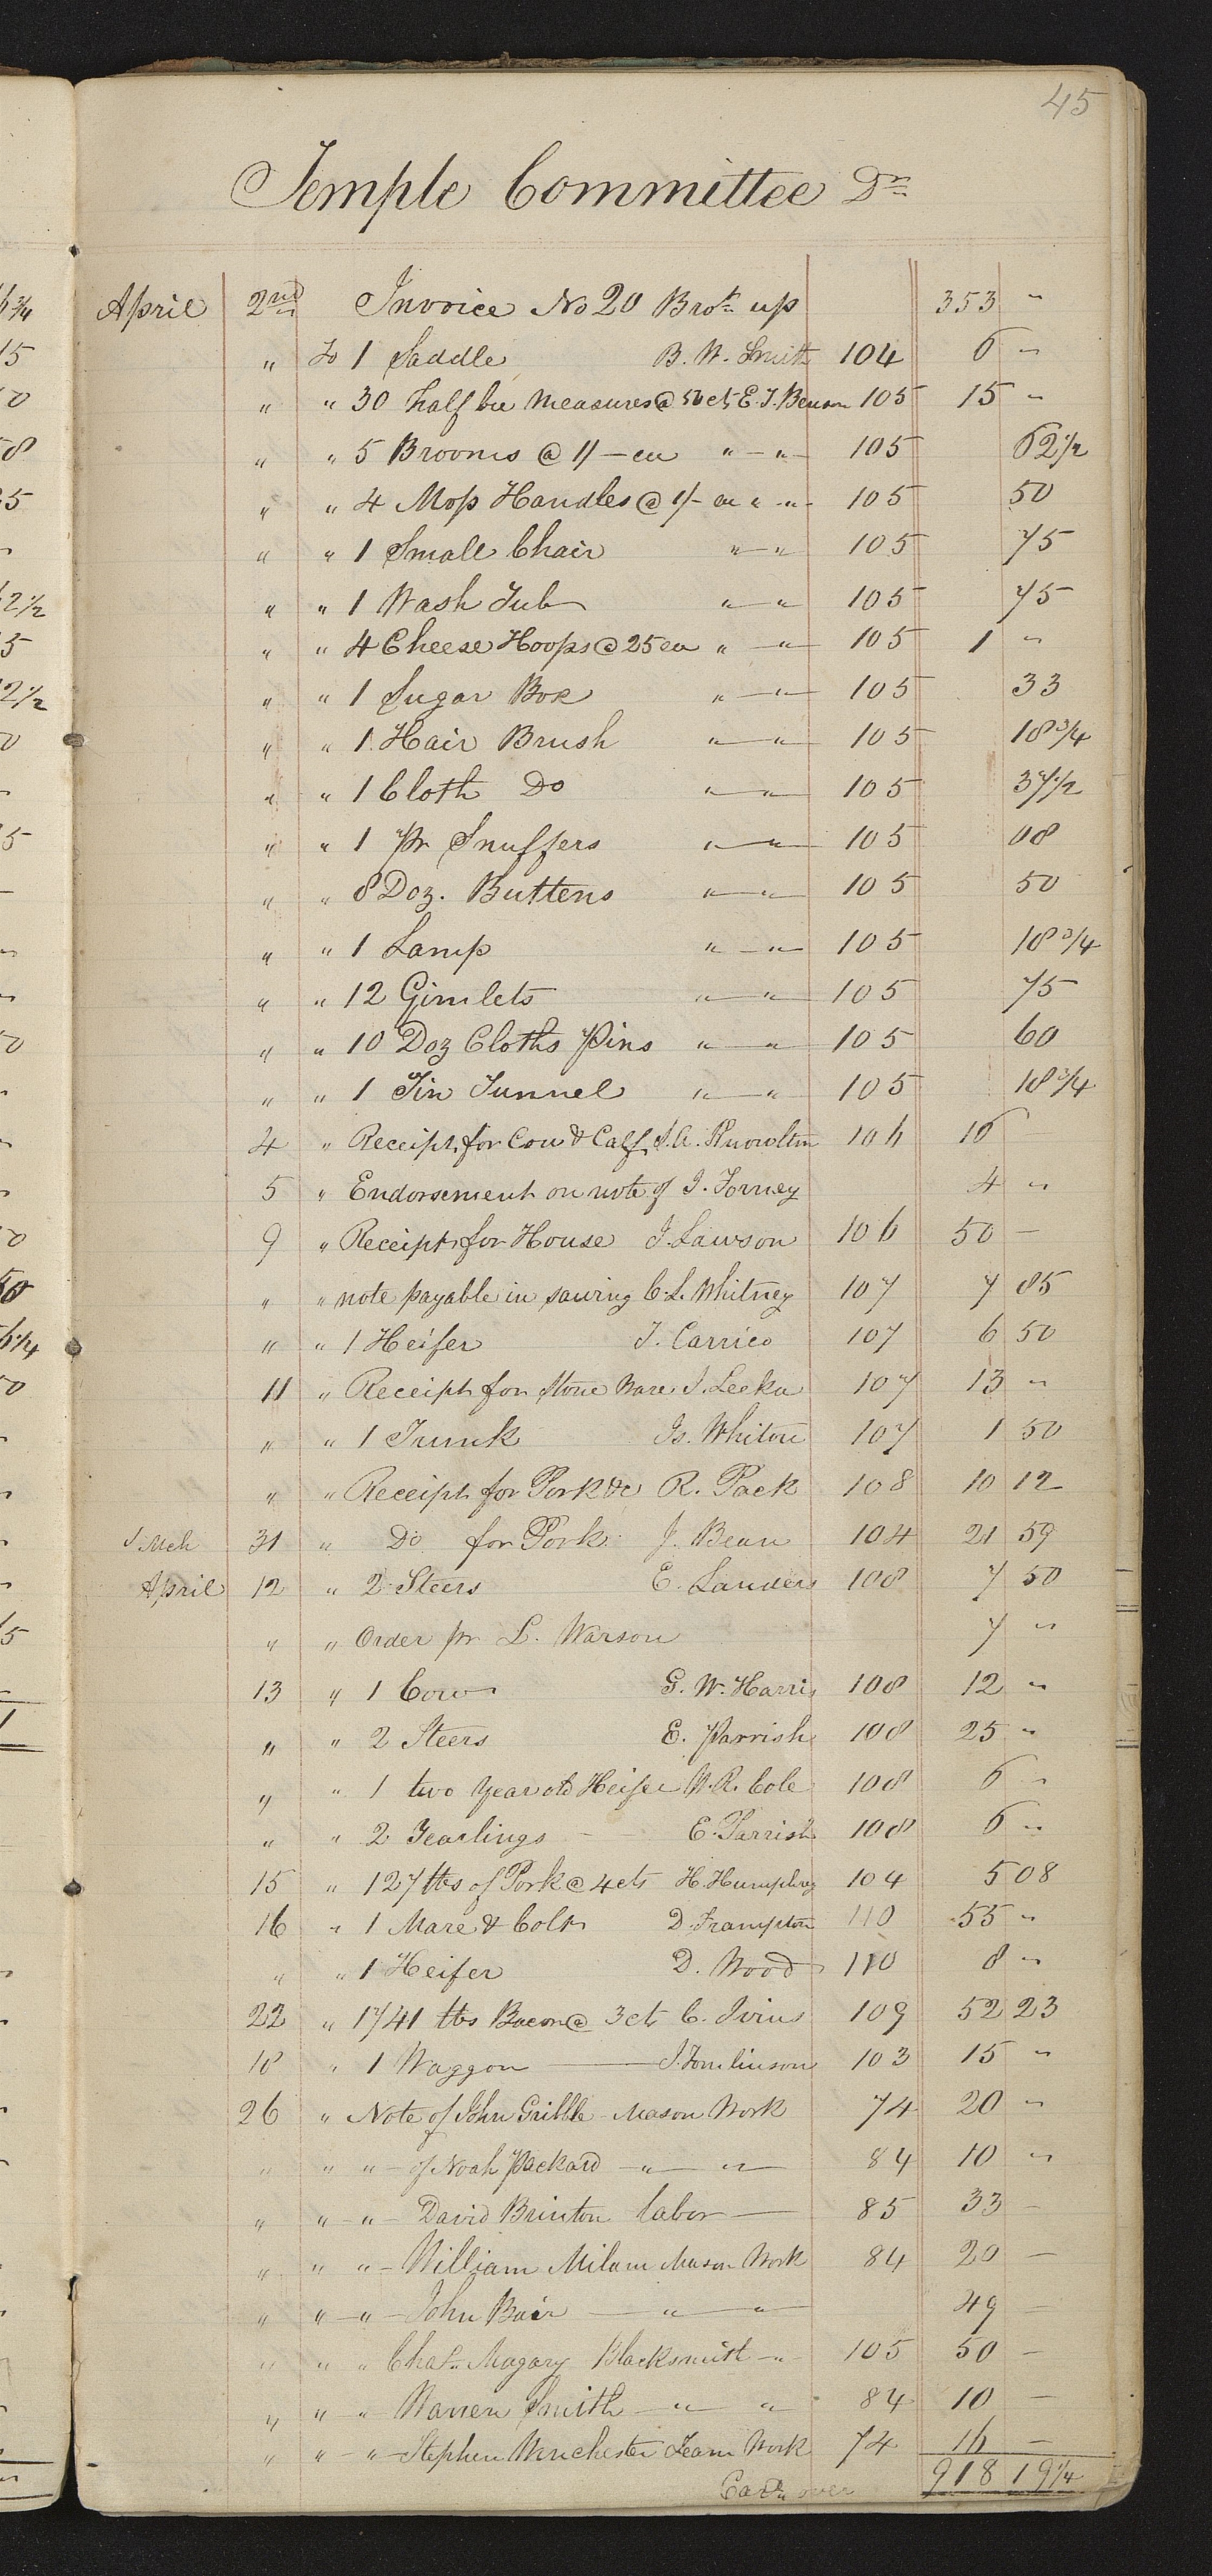 45
Temple Committee Dr
April 2nd Invoice No 20 Brot up 353 "
" To 1 Saddle B. W. Smith 104 6 "
" " 30 half bu Measures @ 50 cts E. T. Benson 105 15 "
" " 5 Brooms @ 1/- ea " - " 105 62 1/2
" " 4 Mop Handles @ 1/- ea " - " 105 50
" " 1 Small Chair " - " 105 75
" " 1 Wash Tub " - " 105 75
" " 4 Cheese Hoops @ 25 ea " - " 105 1 "
" " 1 Sugar Box " - " 105 33
" " 1 Hair Brush " - " 105 18 3/4
" " 1 Cloth Do " - " 105 37 1/2
" " 1 pr Snuffers " - " 105 08
" " 8 Doz. Buttens " - " 105 50
" " 1 Lamp " - " 105 18 3/4
" " 12 Gimlets " - " 105 75
" " 10 Doz Cloths Pins " - " 105 60
" " 1 Tin Tunnel " - " 105 18 3/4
4 " Receipt for Cow & Calf S. A. Knowlton 106 16
5 " Endorsement on note of J. Forney 4 "
9 " Receipt for House J. Lawson 106 50 -
" " note payable in sawing C. L. Whitney 107 7 85
" " 1 Heifer T. Carrico 107 6 50
11 " Receipt for Stone Ware J. Leeka 107 13 "
" " 1 Trunk Is. Whiton 107 1 50
" " Receipt for Pork &c R. Pack 108 10 12
Mch 31 " Do for Pork J. Bean 104 21 59
April 12 " 2 Steers E. Landers 108 7 50
" " Order pr L. Warson 7 "
13 " 1 Cow G. W. Harris 108 12 "
" " 2 Steers E. Parrish 108 25 "
" " 1 two year old Heifer W. R. Cole 108 6 "
" " 2 Yearlings - E. Parrish 108 6 "
15 " 127 lbs of Pork @ 4 cts H. Humphrey 104 5 08
16 " 1 Mare & Colt D. Frampton 110 55 "
" " 1 Heifer D. Wood 110 8 "
22 " 1741 lbs Bacon @ 3 cts C. Ivins 109 52 23
18 " 1 Waggon J. Tomlinson 103 15 "
26 " Note of John Gribble Mason Work 74 20 "
" " " - of Noah Packard - " - " - 84 10 "
" " - " - David Brinton labor - 85 33 -
" " " - William Milam Mason Work 84 20 -
" " - " - John Bair - " - " - 49 -
" " " Chas. Magary Blacksmith - " 105 50 -
" " - " Warren Smith - " - " 84 10 -
" " - " - Stephen Winchester Team Work 74 16 -
Card over 918 19 1/4